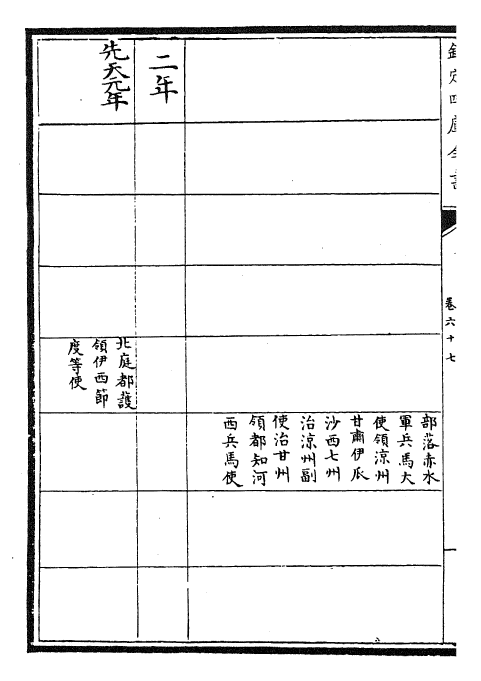 欽定四庫全書
卷六十七
部落赤水
軍兵馬大
使領涼州
甘肅伊瓜
沙西七州
治涼州副
使治甘州
領都知河
西兵馬使
二年
先天元年
北庭都護
領伊西節
度等使